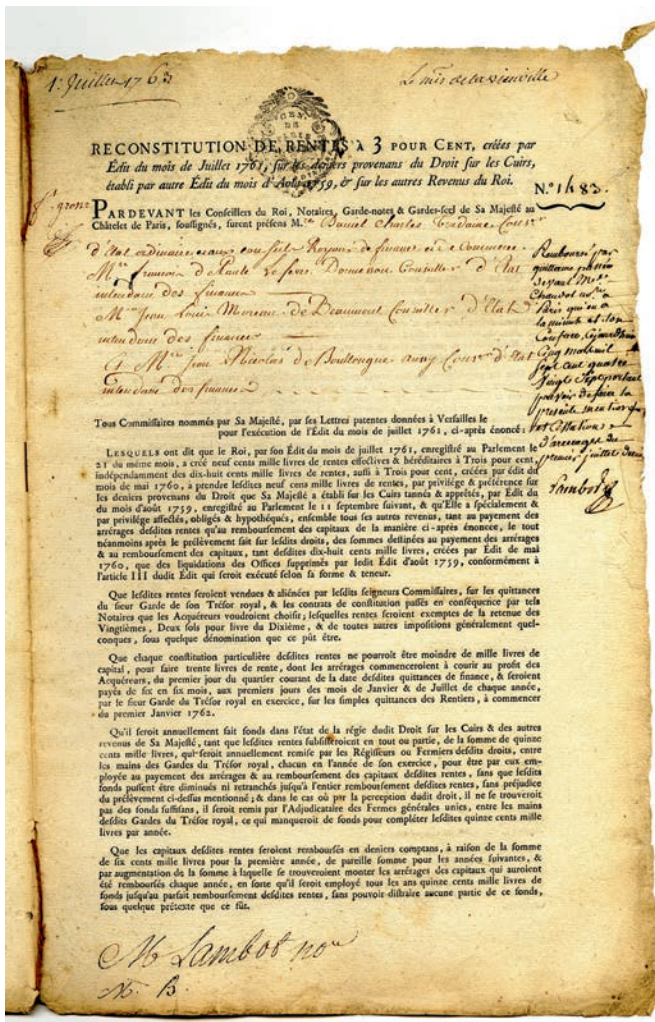 1er Juillet 1763
Le mis de la vieuville
GEN
DE
PARIS
RECONSTITUTION DE RENTES A 3 POUR CENT, créées par
Édit du mois de Juillet 1761, sur les deniers provenans du Droit sur les Cuirs,
établi par autre Édit du mois d'Août 1759, & sur les autres Revenus du Roi.
N.º 1483.
PARDEVANT les Conseillers du Roi, Notaires, Garde-notes & Gardes-scel de Sa Majesté au
Châtelet de Paris, soussignés, furent présens M.re Daniel Charles Trudaine Con.er
d'Etat ordinaire et aux conseils Royaux de finance et de Commerce.
M.re François de Paule Le fevre Dormesson Conseiller d'Etat
intendant des finances
M.re Jean Louis Moreau de Beaumont Conseiller d'Etat
intendant des finances
Et M.re Jean Nicolas de Boullongne aussy Con.er d'Etat
intendant des finances
Remboursé par
quittance passée
devant Me.
Chaudot no.re a
Paris qui en a
la minute et son
Confrere, cejourd'hui
Cinq mai mil
sept cent quatre
vingt sept portant
pouvoir de faire la
presente mention
arrerages du
premier juillet
Lambot
Tous Commissaires nommés par Sa Majesté, par ses Lettres patentes données à Versailles le
pour l'exécution de l'Édit du mois de juillet 1761, ci-après énoncé:
LESQUELS ont dit que le Roi, par son Édit du mois de juillet 1761, enregistré au Parlement le
21 du même mois, a créé neuf cents mille livres de rentes effectives & héréditaires à Trois pour cent,
indépendamment des dix-huit cents mille livres de rentes, aussi à Trois pour cent, créées par édit du
mois de mai 1760, à prendre lesdites neuf cens mille livres de rentes, par privilége & préférence sur
les deniers provenans du Droit que Sa Majesté a établi sur les Cuirs tannés & apprêtés, par Édit du
du mois d'août 1759, enregistré au Parlement le 11 septembre suivant, & qu'Elle a spécialement &
par privilége affectés, obligés & hypothéqués, ensemble tous ses autres revenus, tant au payement des
arrérages desdites rentes qu'au remboursement des capitaux de la manière ci-après énoncée, le tout
néanmoins après le prélèvement fait sur lesdits droits, des sommes destinées au payement des arrérages
& au remboursement des capitaux, tant desdites dix-huit cents mille livres, créées par Édit de mai
1760, que des liquidations des Offices supprimés par ledit Édit d'août 1759, conformément à
l'article III dudit Édit qui seroit exécuté selon sa forme & teneur.
Que lesdites rentes seroient vendues & aliénées par lesdits seigneurs Commissaires, sur les quittances
du sieur Garde de son Trésor royal, & les contrats de constitution passés en conséquence par tels
Notaires que les Acquéreurs voudroient choisir; lesquelles rentes seroient exemptes de la retenue des
Vingtièmes, Deux sols pour livre du Dixième, & de toutes autres impositions généralement quel-
conques, sous quelque dénomination que ce pût être.
Que chaque constitution particulière desdites rentes ne pourroit être moindre de mille livres de
capital, pour faire trente livres de rente, dont les arrérages commenceroient à courir au profit des
Acquéreurs, du premier jour du quartier courant de la date desdites quittances de finance, & seroient
payés de six en six mois, aux premiers jours des mois de Janvier & de Juillet de chaque année,
par le sieur Garde du Trésor royal en exercice, sur les simples quittances des Rentiers, à commencer
du premier Janvier 1762.
Qu'il seroit annuellement fait fonds dans l'état de la régie dudit Droit sur les Cuirs & des autres
revenus de Sa Majesté, tant que lesdites rentes subsisteroient en tout ou partie, de la somme de quinze
cents mille livres, qui seroit annuellement remise par les Régisseurs ou Fermiers desdits droits, entre
les mains des Gardes du Trésor royal, chacun en l'année de son exercice, pour être par eux em-
ployée au payement des arrérages & au remboursement des capitaux desdites rentes, sans que lesdits
fonds pussent être diminués ni retranchés jusqu'à l'entier remboursement desdites rentes, sans préjudice
du prélèvement ci-dessus mentionné; & dans le cas où par la perception dudit droit, il ne se trouveroit
pas des fonds suffisans, il seroit remis par l'Adjudicataire des Fermes générales unies, entre les mains
desdits Gardes du Trésor royal, ce qui manqueroit de fonds pour compléter lesdites quinze cents mille
livres par année.
Que les capitaux desdites rentes seroient remboursés en deniers comptans, à raison de la somme
de six cents mille livres pour la première année, de pareille somme pour les années suivantes, &
par augmentation de la somme à laquelle se trouveroient monter les arrérages des capitaux qui auroient
été remboursés chaque année, en sorte qu'il seroit employé tous les ans quinze cents mille livres de
fonds jusqu'au parfait remboursement desdites rentes, sans pouvoir distraire aucune partie de ce fonds,
sous quelque prétexte que ce fût.
Me Lambot no.re